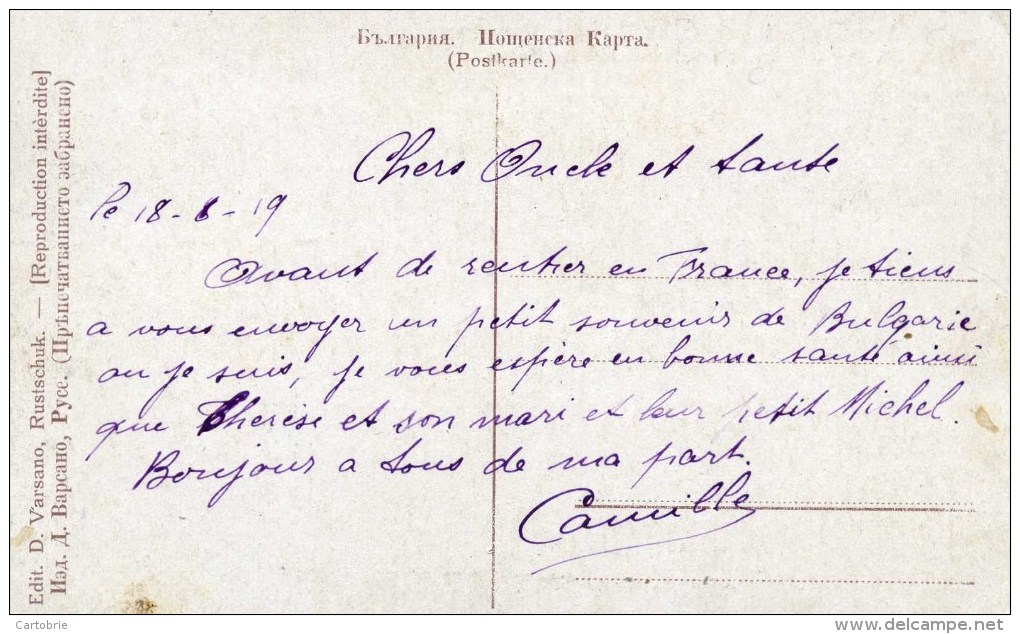 България. Пощенска Карта.
(Postkarte.)
Chers Oncle et tante
le 18-6-19
Avant de rentrer en France, je tiens
a vous envoyer un petit souvenir de Bulgarie
ou je suis, je vous espère en bonne santé ainsi
que Therese et son mari et leur petit Michel.
Bonjour a tous de ma part.
Camille
Edit. D. Varsano, Rustschuk. — [Reproduction intèrdite]
Изд. Д. Варсано, Русе. (Прѣпечатванието забранено)
Cartobrie
www.delcampe.net